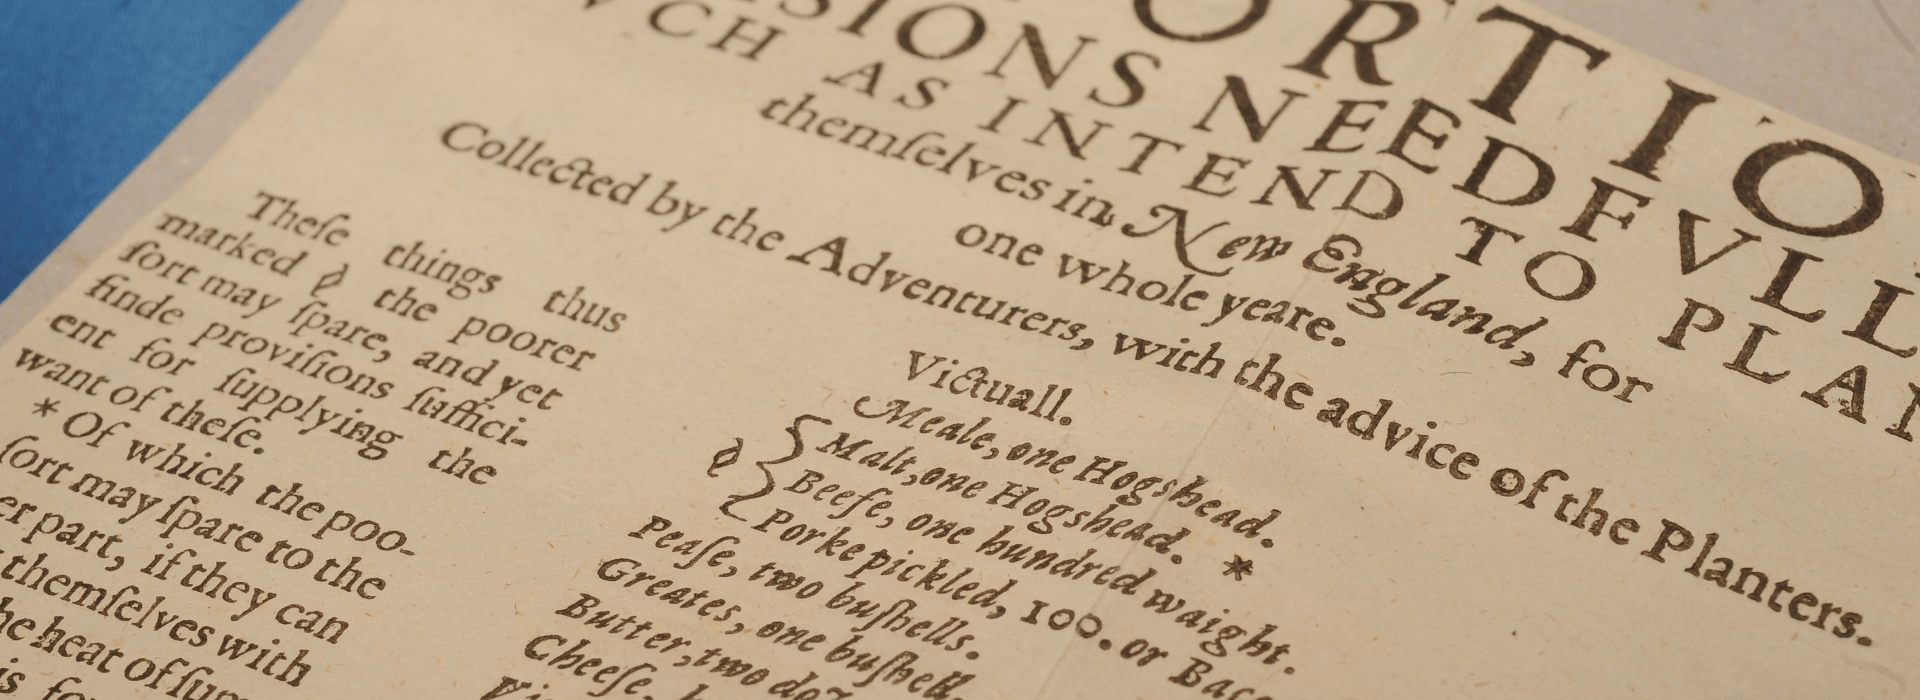 ORTIO
SIONS NEEDFVLL
VCH AS INTEND TO PLAN
themſelves in New England, for
one whole yeare.
Collected by the Adventurers, with the advice of the Planters.
Theſe things thus
marked the poorer
ſort may ſpare, and yet
finde proviſions ſuffici-
ent for ſupplying the
want of theſe.
* Of which the poo-
ſort may ſpare to the
er part, if they can
themſelves with
he heat of ſum
is for
Victuall.
Meale, one Hogshead.
Malt, one Hogshead. *
Beefe, one hundred waight.
Porke pickled, 100. or Baco
Peaſe, two buſhells.
Greates, one buſhell.
Butter, two doz
Cheeſe,